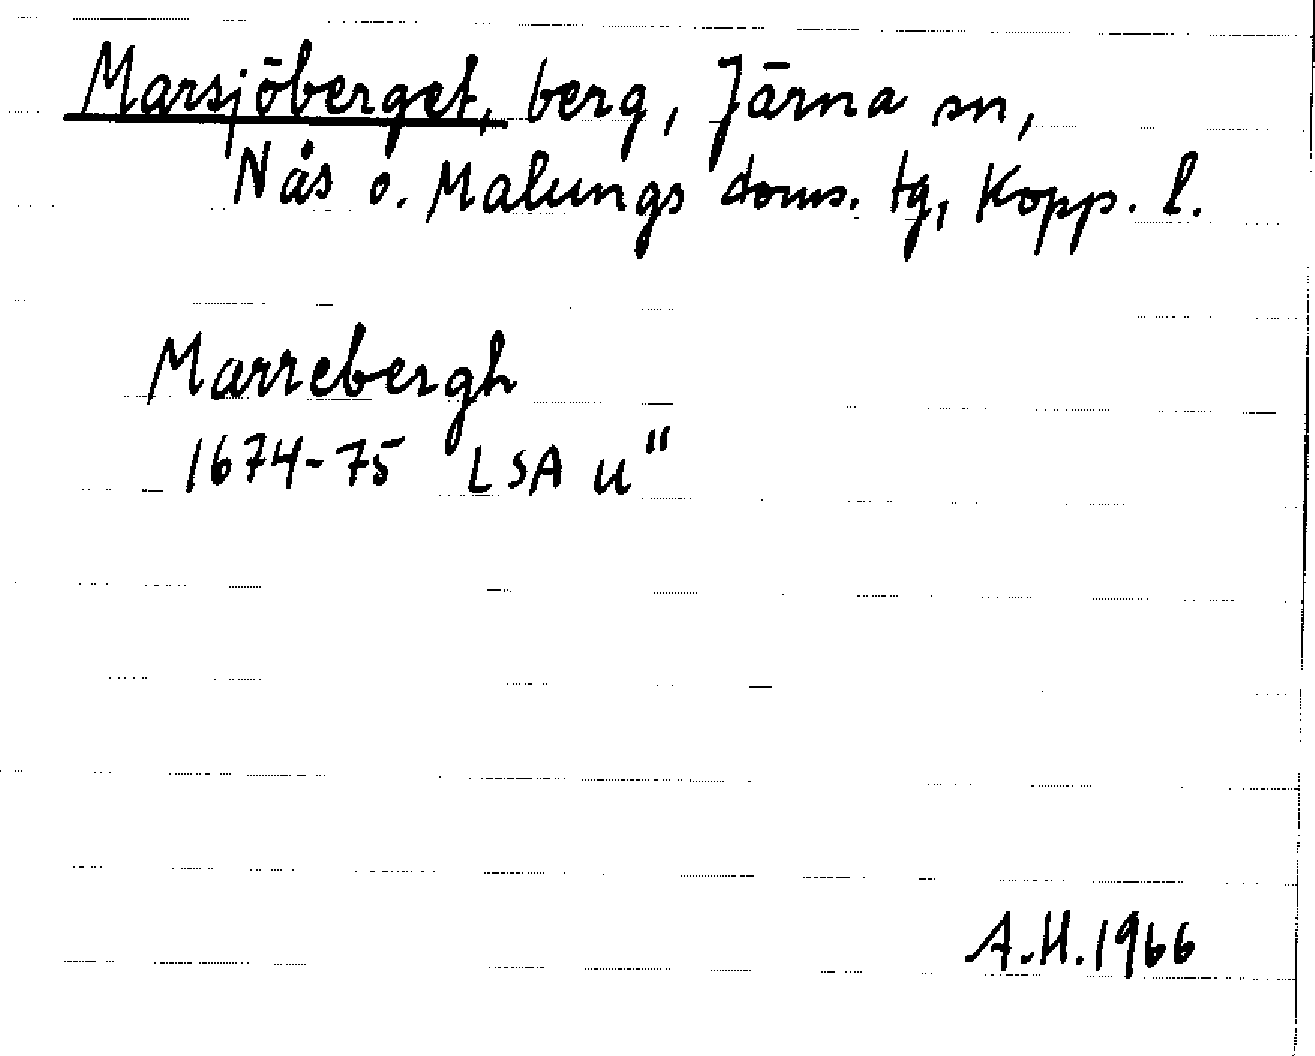 Marsjöberget, berg, Järna sn,
Nås o. Malungs doms. tg, Kopp. l.
Marrebergh
1674-75 LSA U"
A.H. 1966